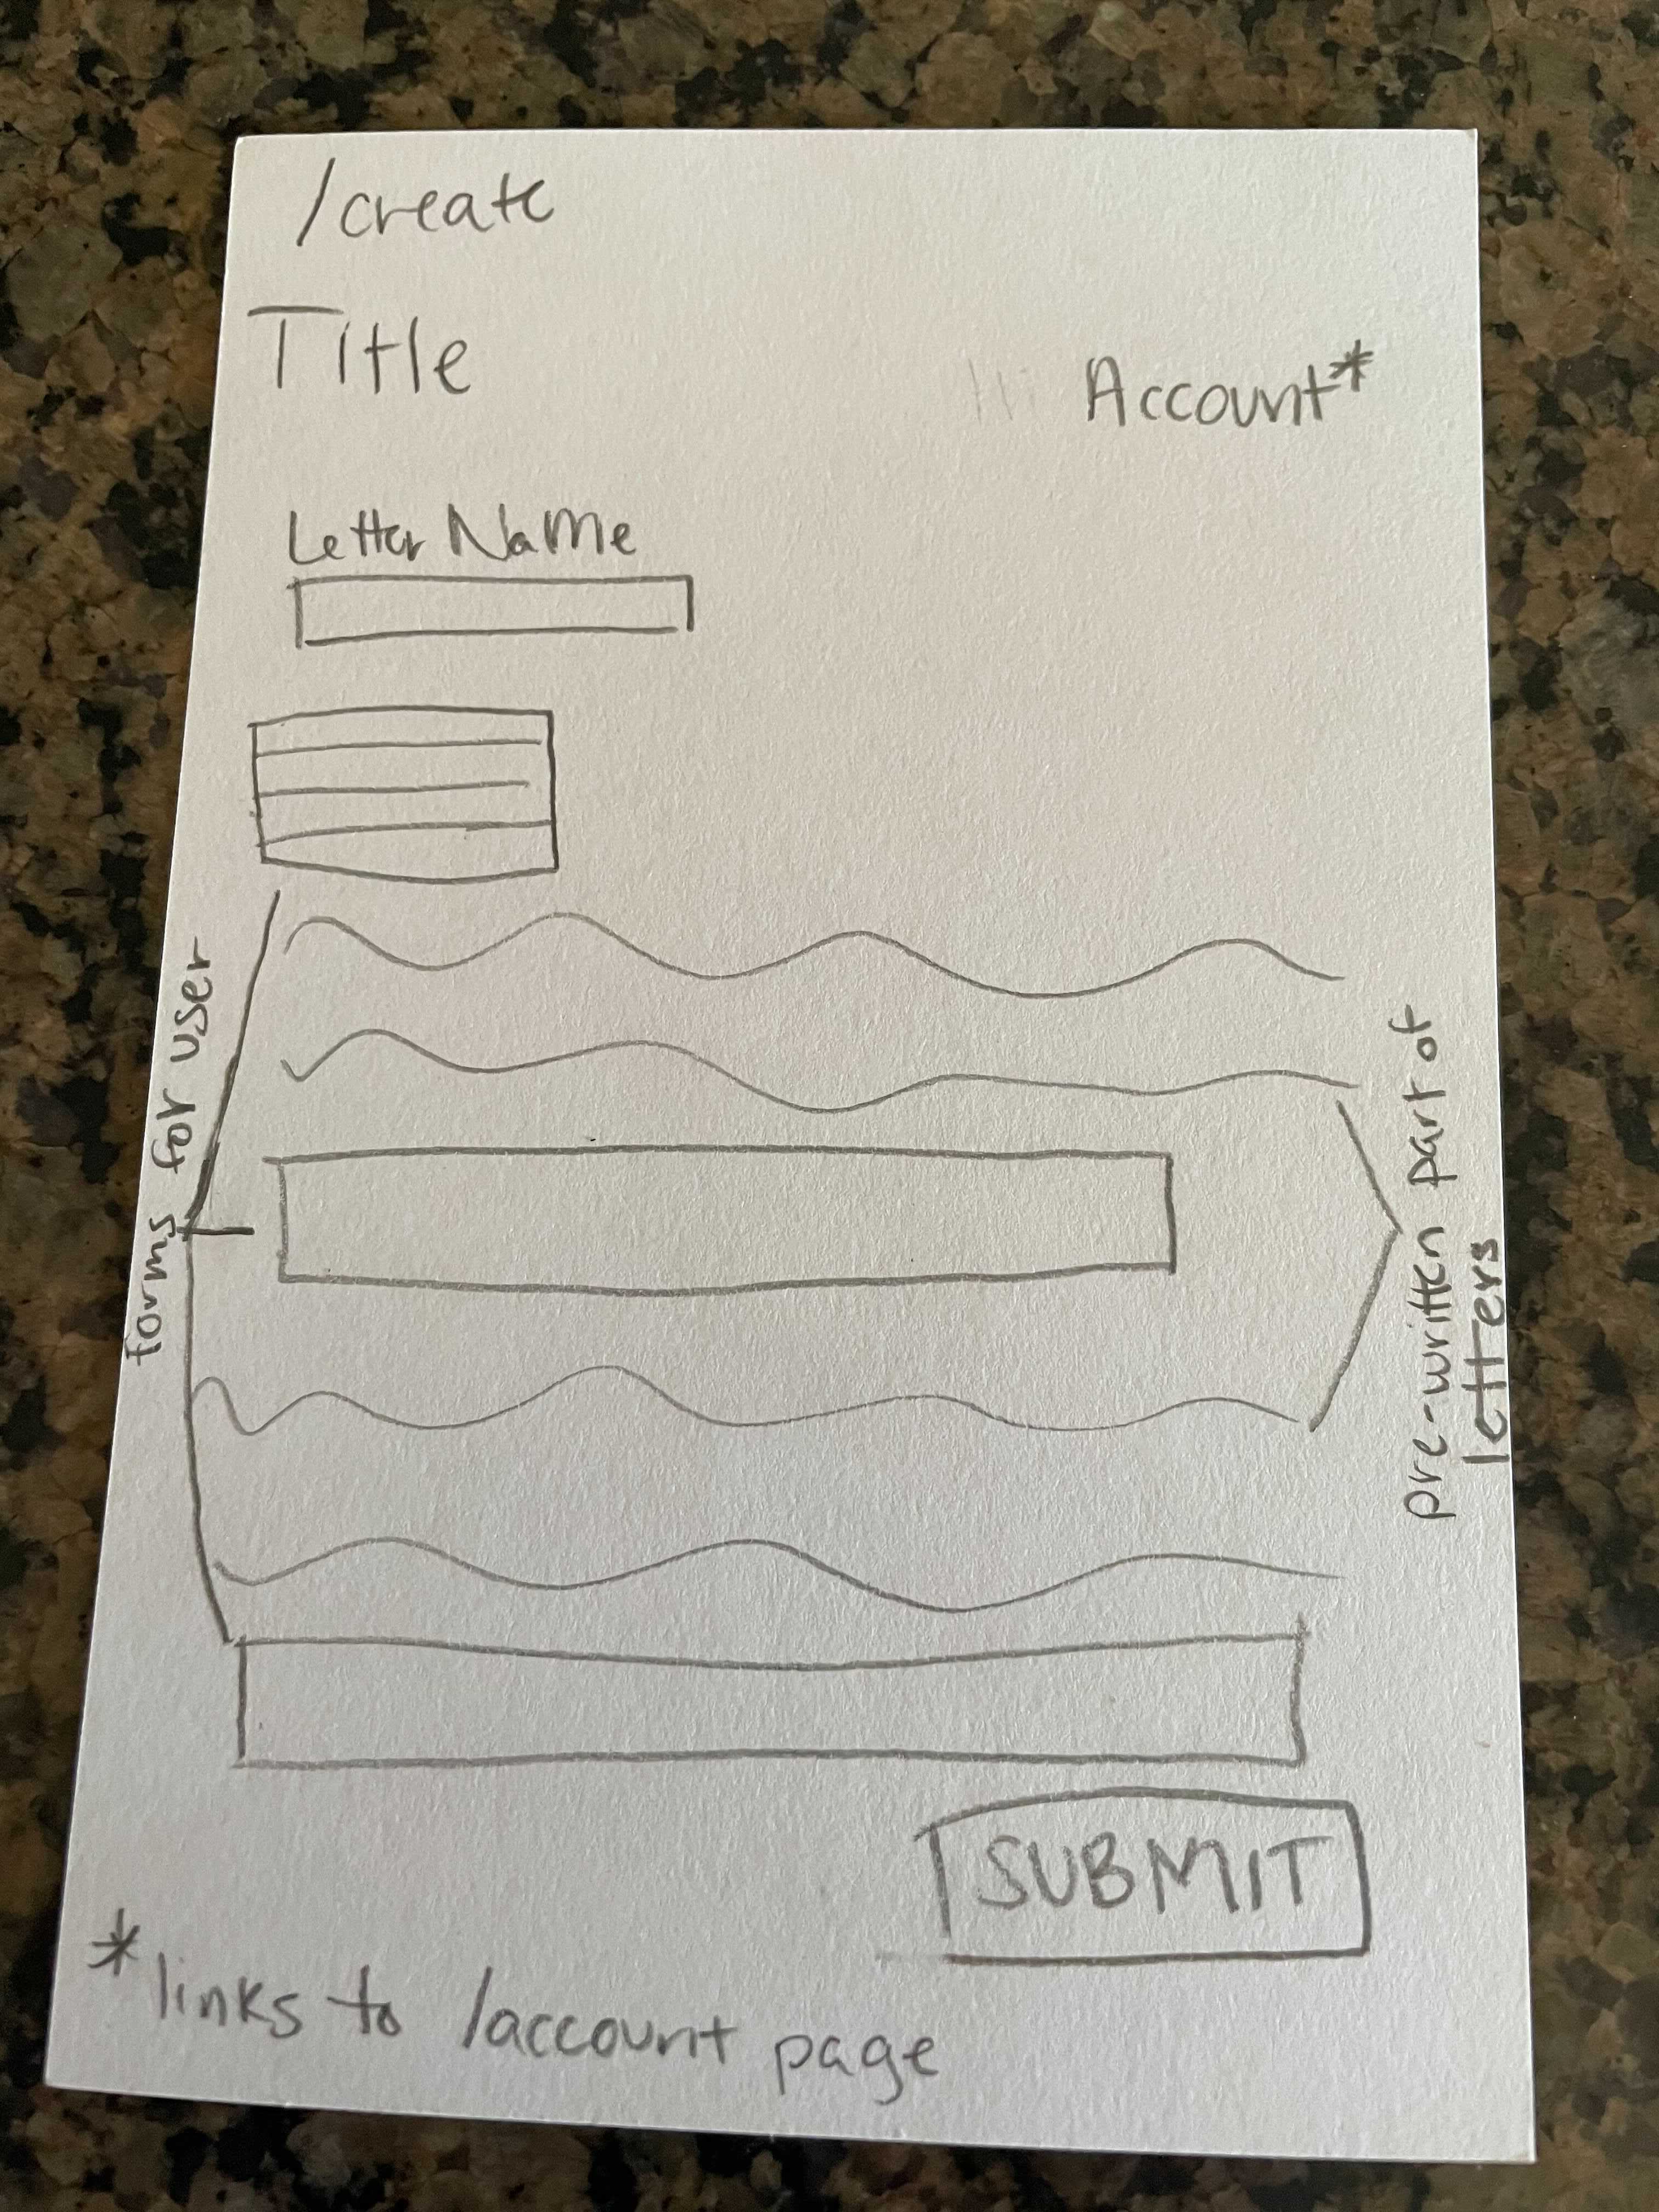 /create
Title
Account*
Letter Name
forms for user
pre-written part of
letters
SUBMIT
*links to /account page